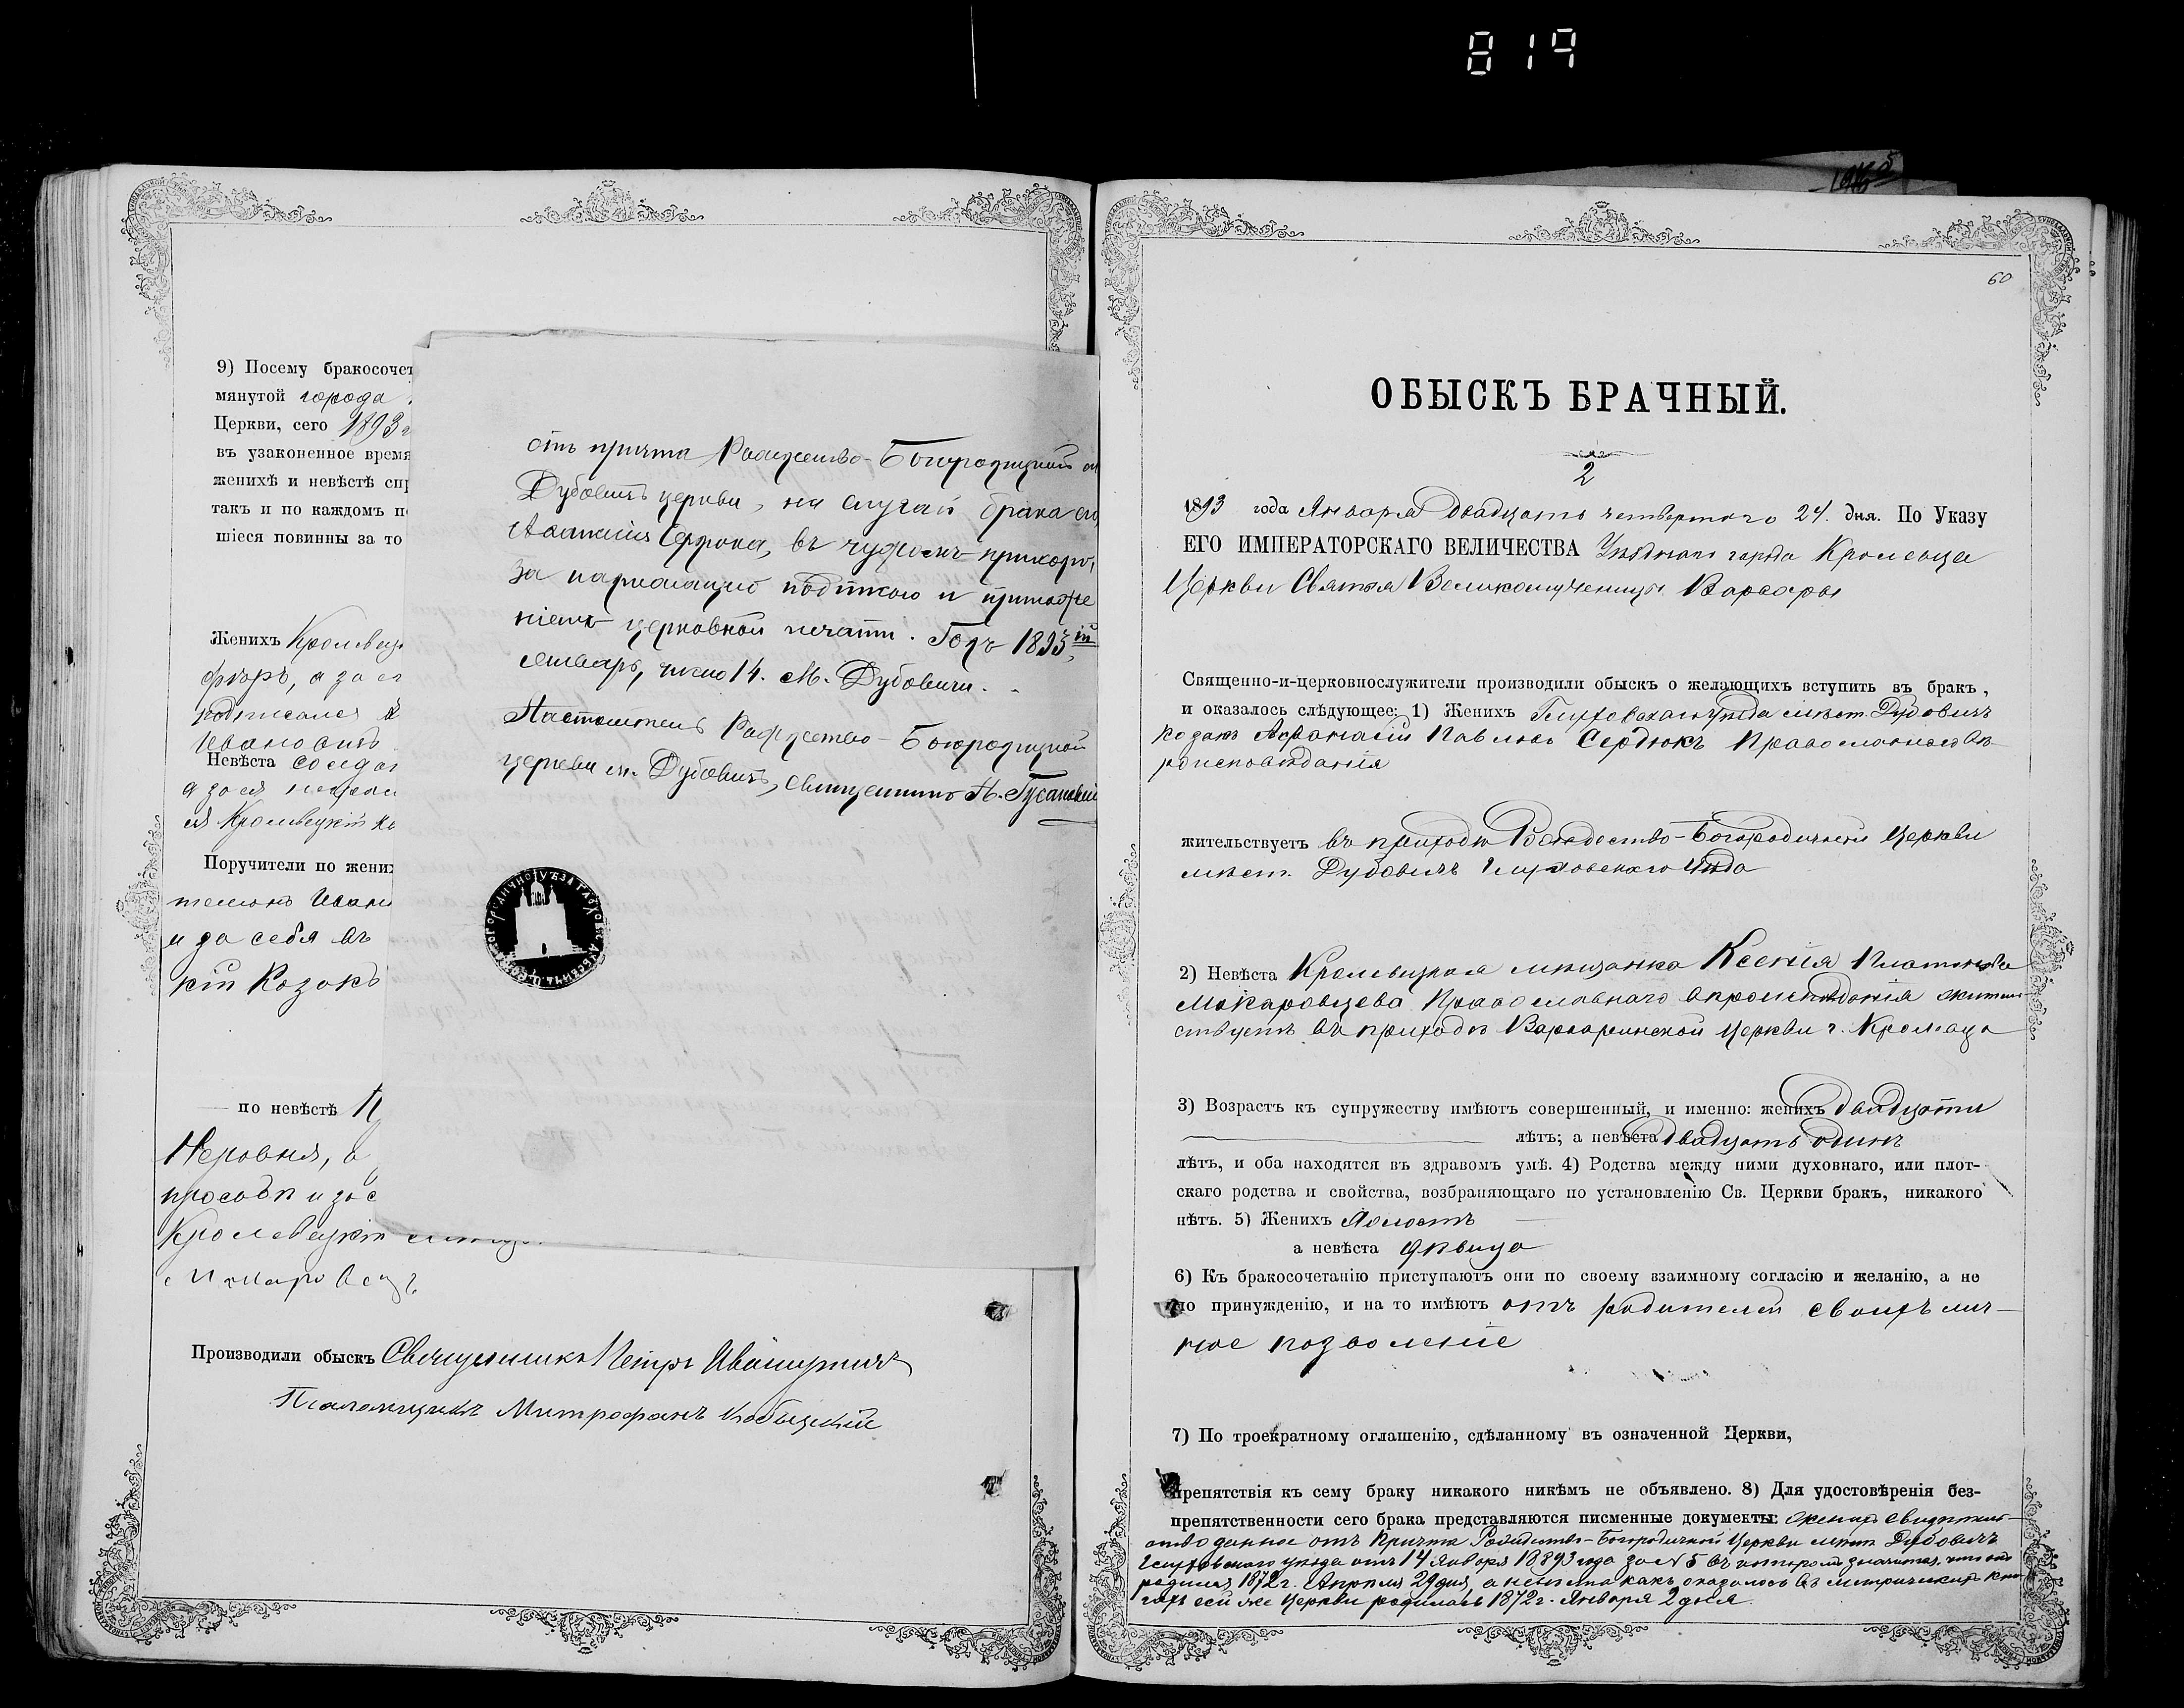 819
9) Посему бракосочет
мянутой города
Церкви, сего 1893 г
въ узаконенное время
женихѣ и невѣстѣ спр
такъ и по каждомъ п
шіеся повинны за то
Женихъ Кролевец
а за
подписался
Иванъ
Невѣста
а за ея
ея Кролевецкій
Поручители по жених
Иван
и за себя въ
кій Козокъ
по невѣстѣ
Неровня, а
просьбѣ и за с
Кролевецкій
Макаровецъ
Производили обыскъ Священникъ Петръ
Псаломщикъ Митрофанъ
отъ причта Рождество-Богородицкой м.
Дубовичъ церкви, на случай брака его,
Афанасія Сердюка, въ чужомъ приходѣ,
за надлежащею подписью и приложе
ніемъ церковной печати. Годъ 1893ій
Январь, число 14. М. Дубовичи.
Настоятель Рождество-Богородицкой
церкви м. Дубовичъ, священникъ
60
ОБЫСКЪ БРАЧНЫЙ.
2
1893 года Января двадцать четвертого 24. дня. По Указу
ЕГО ИМПЕРАТОРСКАГО ВЕЛИЧЕСТВА Уѣзднаго города Кролевца
Церкви Святыя Великомученицы Варвары
Священно-и-церковнослужители производили обыскъ о желающихъ вступить въ бракъ,
и оказалось слѣдующее: 1) Женихъ Глуховскаго уѣзда мѣст. Дубовичъ
козакъ Афанасій Павловъ Сердюкъ Православнаго вѣ-
роисповѣданія
жительствуетъ въ приходѣ Рождество-Богородичной Церкви
мѣст. Дубовичъ Глуховскаго уѣзда
2) Невѣста Кролевецкая мѣщанка Ксенія Платонова
Макаровцева Православнаго вѣроисповѣданія жительствуетъ
въ приходѣ Варваринской Церкви г. Кролевца
3) Возрастъ къ супружеству имѣютъ совершенный, и именно: женихъ двадцати
лѣтъ; а невѣста двадцать одинъ
лѣтъ, и оба находятся въ здравомъ умѣ. 4) Родства между ними духовнаго, или плот-
скаго родства и свойства, возбраняющаго по установленію Св. Церкви бракъ, никакого
нѣтъ. 5) Женихъ холостъ
а невѣста дѣвица
6) Къ бракосочетанію приступаютъ они по своему взаимному согласію и желанію, а не
по принужденію, и на то имѣютъ отъ родителей своихъ лич-
ное позволеніе
7) По троекратному оглашенію, сдѣланному въ означенной Церкви,
препятствія къ сему браку никакого никѣмъ не объявлено. 8) Для удостовѣренія без-
препятственности сего брака представляются писменные документы: жених. свидѣтель-
ство данное отъ Причта Рождество-Богородичной Церкви мѣст. Дубовичъ
Глуховскаго уѣзда отъ 14 Января 18893 года за № 5 въ которомъ значится, что онъ
родился 1872 г. Апрѣля 29 дня, а невѣста какъ оказалось въ метрическихъ кни-
гахъ сей же Церкви родилась 1872 г. Января 2 дня